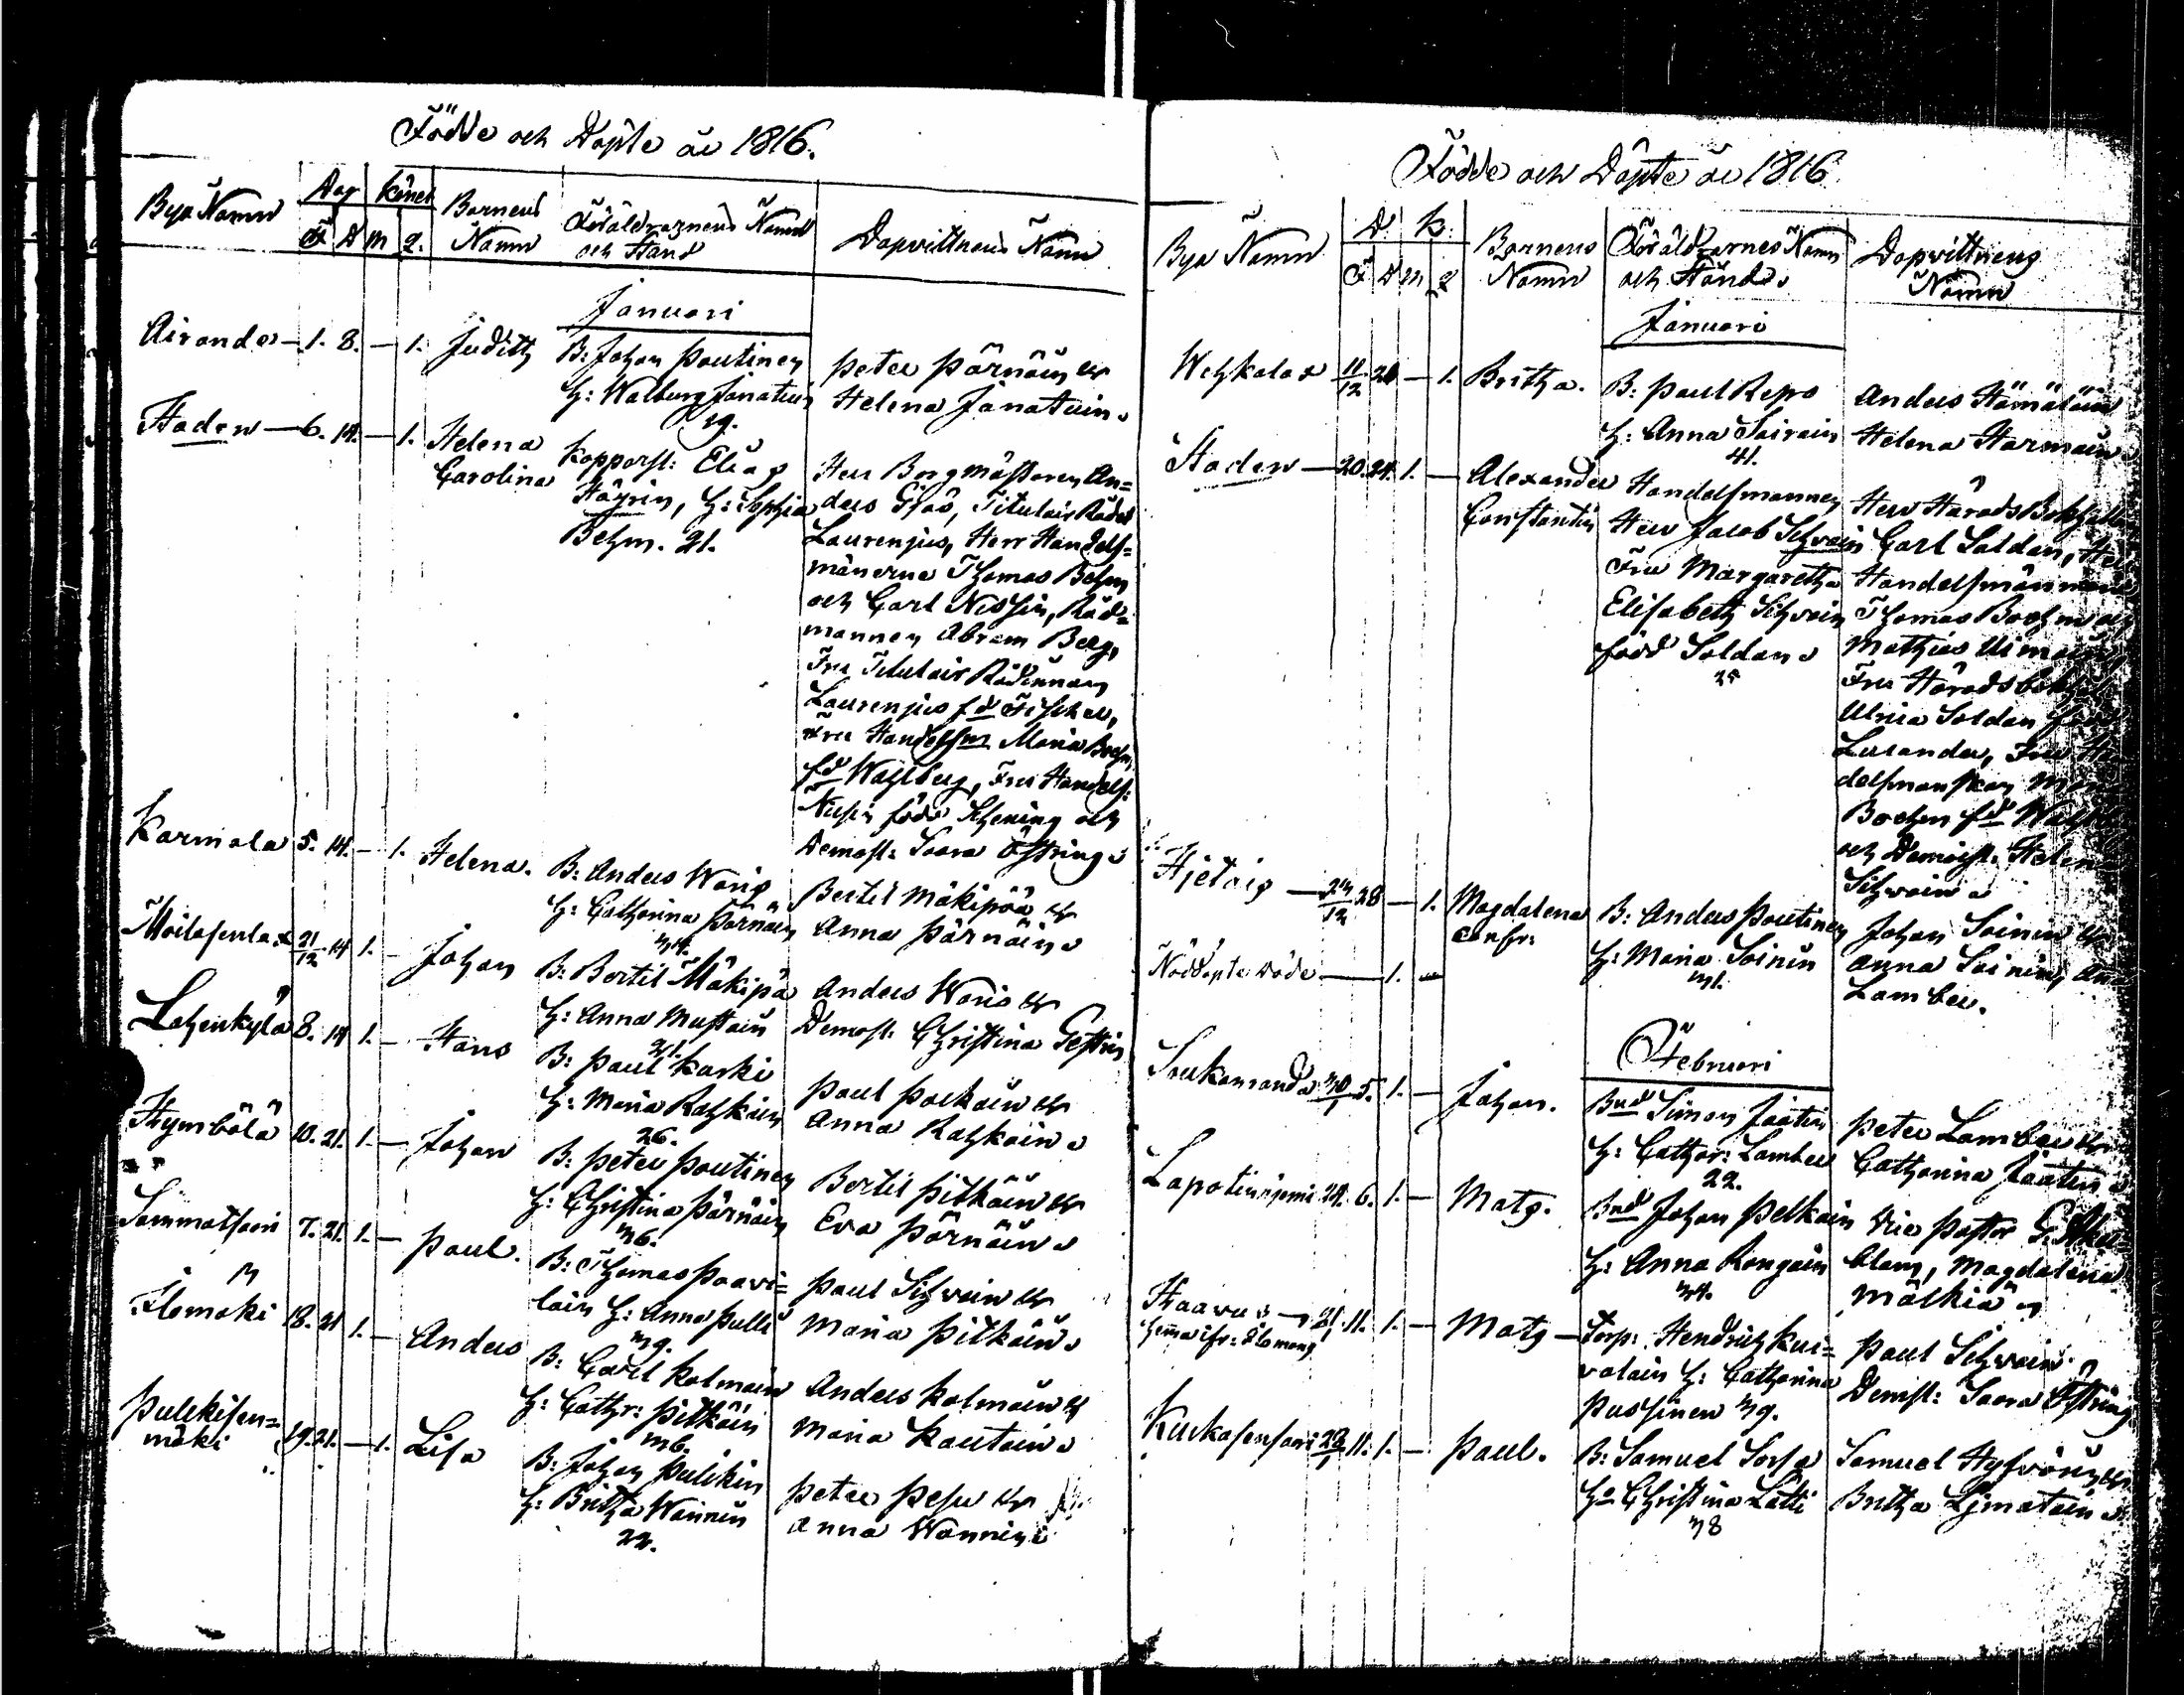 Födde och Döpte år 1816.
Bya Namn
Dag
Könet
F D m q.
Barnens Namn
Föräldrarnes Namn och Stånd
Dopvittnens Namn
Januari
Airanda — 1. 8. — 1. Judith
B: Johan Poutinen
H: Walborg Janatuin
29.
Peter Pärnäin &
Helena Janatuin
Staden — 6. 14. — 1. Helena
Carolina
Kopparsl: Elias
Häyrin, H: Sophia
Behm. 21.
Herr Borgmästaren An=
ders Giös, Titulair Rådet
Laurenjus, Herr Handels=
mänerne Thomas Behm
och Carl Nissin, Råd=
mannen Abram Berg,
Fru Titulair Rådinnan
Laurenjus fd Fischer,
Fru Handelsm Maria Boehm
fd Wahlberg, Fru Handels:
Nissin född Schening och
Demosl: Saara Östring
Karmala 5. 14. — 1. Helena.
B: Anders Woris
H: Catharina Pärnäin
34.
Bertil Mäkipää &
Anna Pärnäin
21/12 14 1. — Johan
B: Bertil Mäkipä
H: Anna Mustoin
21.
Anders Woris &
Demosl: Christina Gestrin
Lahenkylä 8. 14 1. — Hans
B: Paul Karki
H: Maria Rahkoin
26.
Paul Puckoin &
Anna Rahkoin
Kymbölä 10. 21. 1. — Johan
B: Peter Poutinen
H: Christina Pärnäin
36.
Bertil Pitkäin &
Eva Pärnäin
Sammatsari 7. 21. 1. — Paul.
B: Thomas Paavi=
lain H: Anna Pulli
39.
Paul Sihvoin &
Maria Pitkäin
Ilomäki 18. 21 1. — Anders
B: Carl Kolmain
H: Cathr: Pitkäin
36.
Anders Kolmain &
Maria Kautoin
Pulckisen=
mäki 19. 21. — 1. Lisa
B: Johan Pulckin
H: Britha Wannin
22.
Peter Pesu &
Anna Wannin
Födde och Döpte år 1816
Bya Namn
D.
K.
F D m q
Barnens Namn
Föräldrarnes Namn och Stånd
Dopvittnens Namn
Januari
Wehkalax 11/12 21 — 1. Britha.
B: Paul Repo
H: Anna Toivoin
41.
Anders Hämäläin
Helena Harmain
Staden — 20. 24. 1. — Alexander
Constantin
Handelsmannen
Herr Jacob Sihvoin
Fru Margaretha
Elisabeth Sihvoin
född Soldan
25
Herr Härads Bokhål
Carl Soldan,
Handelsmännerne
Thomas Boehm och
Mathias
Fru Härads
Ulrica Soldan
Lusander, Fru
delsmanskan
Boehm fd
och Demoisl: Helena
Sihvoin
Hjetois — 23/12 28 — 1. Magdalena
B: Anders Poutinen
H: Maria Soinin
31.
Johan Soinin &
Anna Soinin,
Lamberg.
Nöddöpte döde — 1. —
Februari
Soukanranda 30/1 5. 1. — Johan.
Bnd Simon Jaatin
H: Cathar: Lamberg
22.
Peter Lamberg &
Catharina Jaatin
Lapotinniemi 24. 6. 1. — Mats.
Bnd Johan Pelkoin
H: Anna Rongain
34.
Vice Pastor G:
blom, Magdalena
Mälkiä
Haavus — 21/1 11. 1. — Mats
Torp: Hendrich Kui=
valain H: Catharina
Pussinen 39.
Paul Sihvoin
Demsl: Saara Östring
Kuckasensari 23/1 11. 1. — Paul.
B: Samuel Sorsa
Ha Christina Latti
38
Samuel Hyfvöin &
Britha Ljmatain